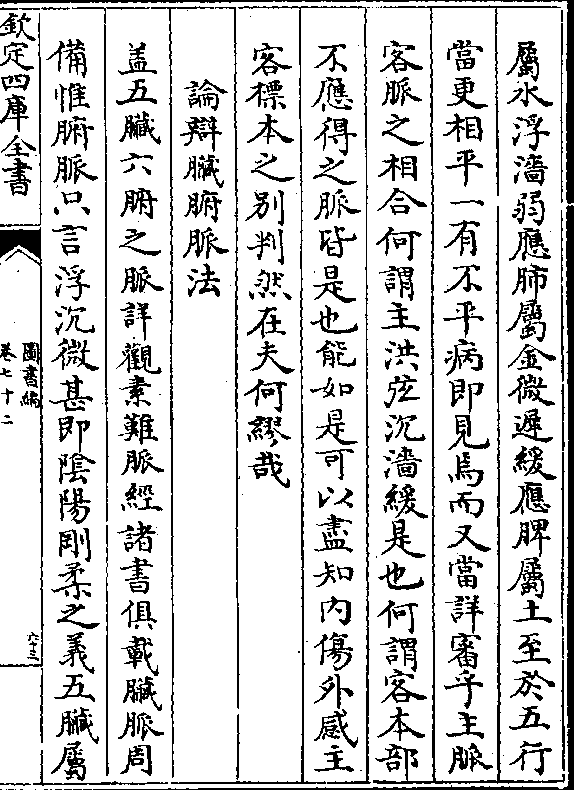 屬水浮濇弱應肺屬金微遲緩應脾屬土至於五行
當更相平一有不平病即見焉而又當詳審乎主脈
客脈之相合何謂主洪弦沉濇緩是也何謂客本部
不應得之脈皆是也能如是可以盡知内傷外感主
客標本之别判然在夫何繆哉
論辯臟腑脈法
盖五臟六腑之脈詳觀素難脈經諸書俱載臟脈周
備惟腑脈只言浮沉微甚即陰陽剛柔之義五臟屬
欽定四庫全書
圖書編
卷七十二
六十三